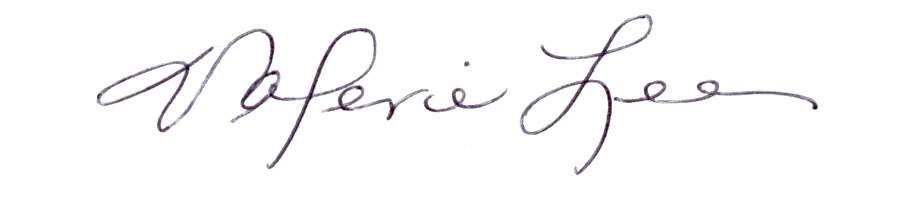 Valerie Lee